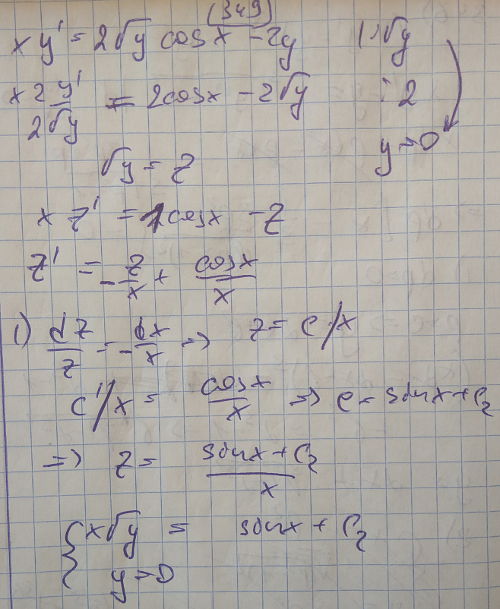 (349)
xy' = 2√y cosx - 2y |:√y
x 2y'/2√y = 2cosx - 2√y :2
y=0
√y = z
xz' = cosx - z
z' = -z/x + cosx/x
1) dz/z = -dx/x => z = c/x
c'/x = cosx/x => c = sinx + C₂
=> z = (sinx + C₂)/x
{ x√y = sinx + C₂
y=0